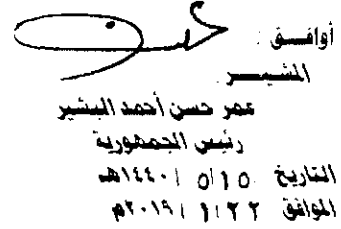 أوافـــق :
المشيـــر
عمر حسن أحمد البشير
رئيس الجمهورية
التاريخ ١٥ / ٥ / ١٤٤٠هـ
الموافق ٢٢ / ١ / ٢٠١٩م